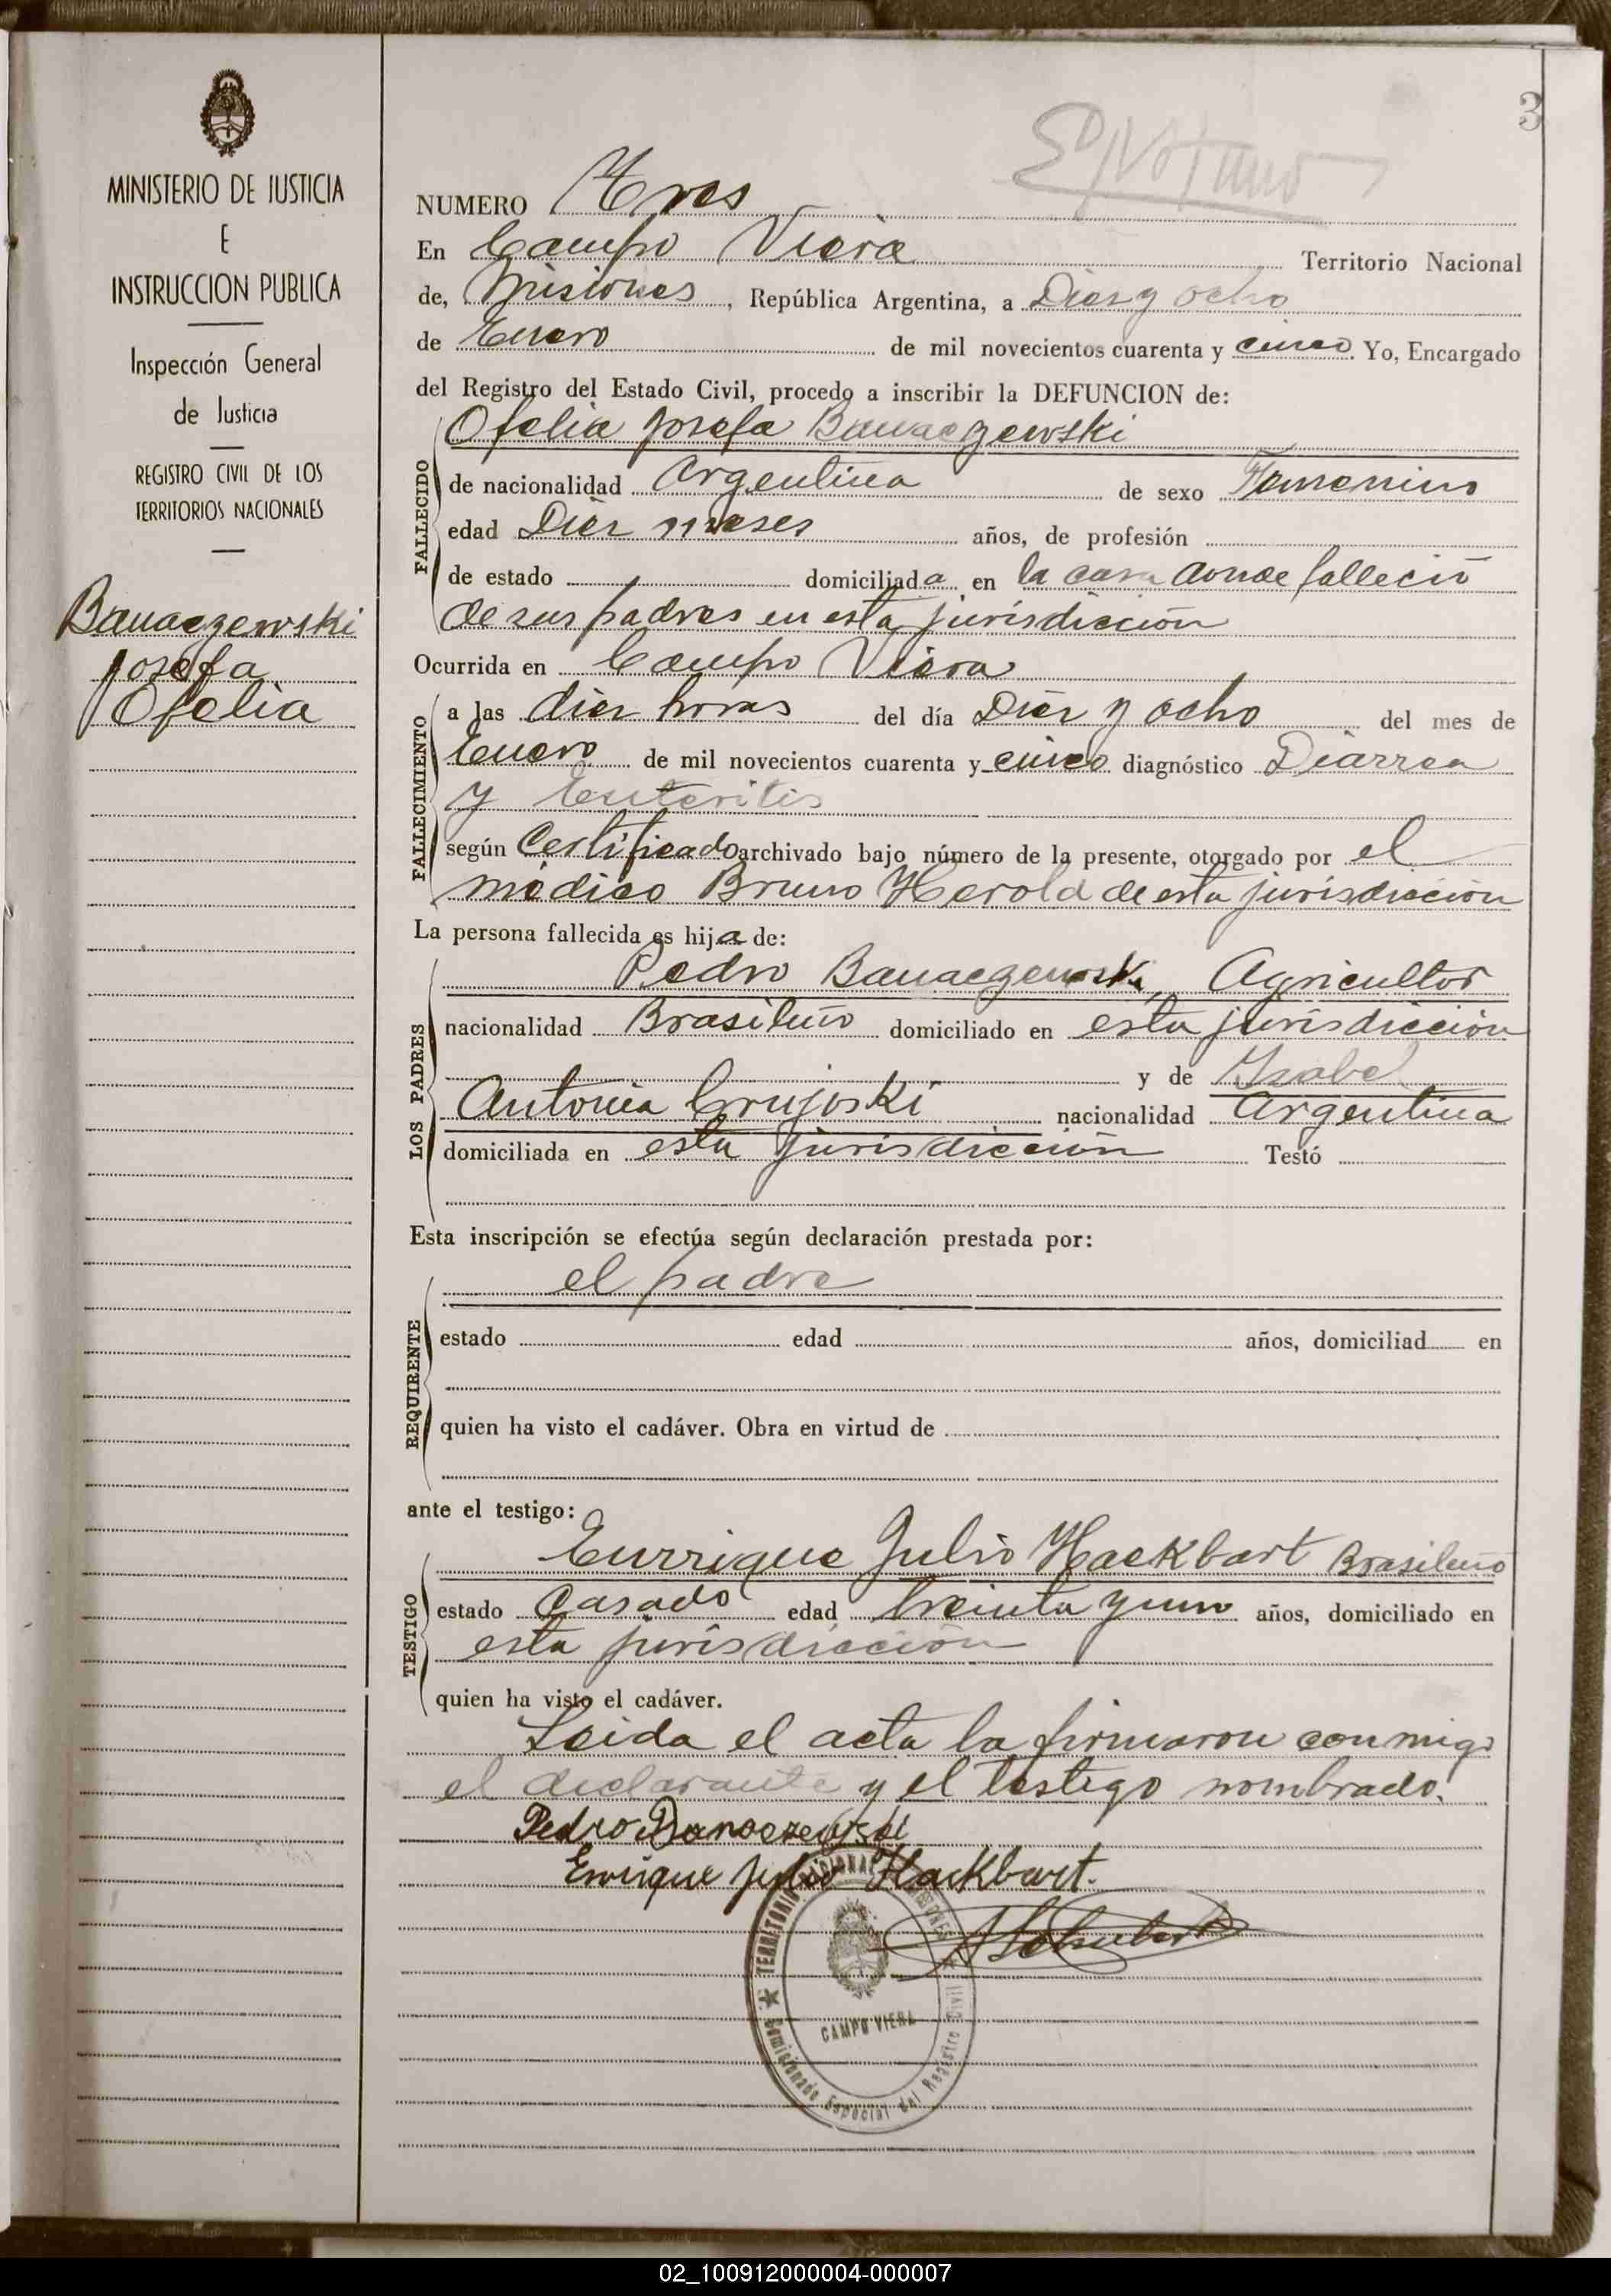 3
MINISTERIO DE JUSTICIA
E
INSTRUCCION PUBLICA
Inspección General
de Justicia
REGISTRO CIVIL DE LOS
TERRITORIOS NACIONALES
Banaczewski
Josefa
Ofelia
NUMERO Tres
En Campo Viera Territorio Nacional
de, Misiones, República Argentina, a Diez y ocho
de Enero de mil novecientos cuarenta y cinco. Yo, Encargado
del Registro del Estado Civil, procedo a inscribir la DEFUNCION de:
FALLECIDO
Ofelia Josefa Banaczewski
de nacionalidad Argentina de sexo Femenino
edad Diez meses años, de profesión
de estado domiciliada en la casa donde falleció
de sus padres en esta jurisdicción
Ocurrida en Campo Viera
FALLECIMIENTO
a las diez horas del día Diez y ocho del mes de
Enero de mil novecientos cuarenta y cinco diagnóstico Diarrea
y Enteritis
según Certificado archivado bajo número de la presente, otorgado por el
médico Bruno Herold de esta jurisdicción
La persona fallecida es hija de:
LOS PADRES
Pedro Banaczewski, Agricultor
nacionalidad Brasileño domiciliado en esta jurisdicción
y de Isabel
Antonia Crujoski nacionalidad Argentina
domiciliada en esta jurisdicción Testó
Esta inscripción se efectúa según declaración prestada por:
REQUIRENTE
el padre
estado edad años, domiciliad en
quien ha visto el cadáver. Obra en virtud de
ante el testigo:
TESTIGO
Enrrique Julio Hackbart Brasileño
estado Casado edad treinta y uno años, domiciliado en
esta jurisdicción
quien ha visto el cadáver.
Leida el acta la firmaron conmigo
el declarante y el testigo nombrado.
Pedro Banaczewski
Enrique Julio Hackbart.
TERRITORIO NACIONAL MISIONES
CAMPO VIERA
Comisionado Especial del Registro Civil
02_100912000004-000007